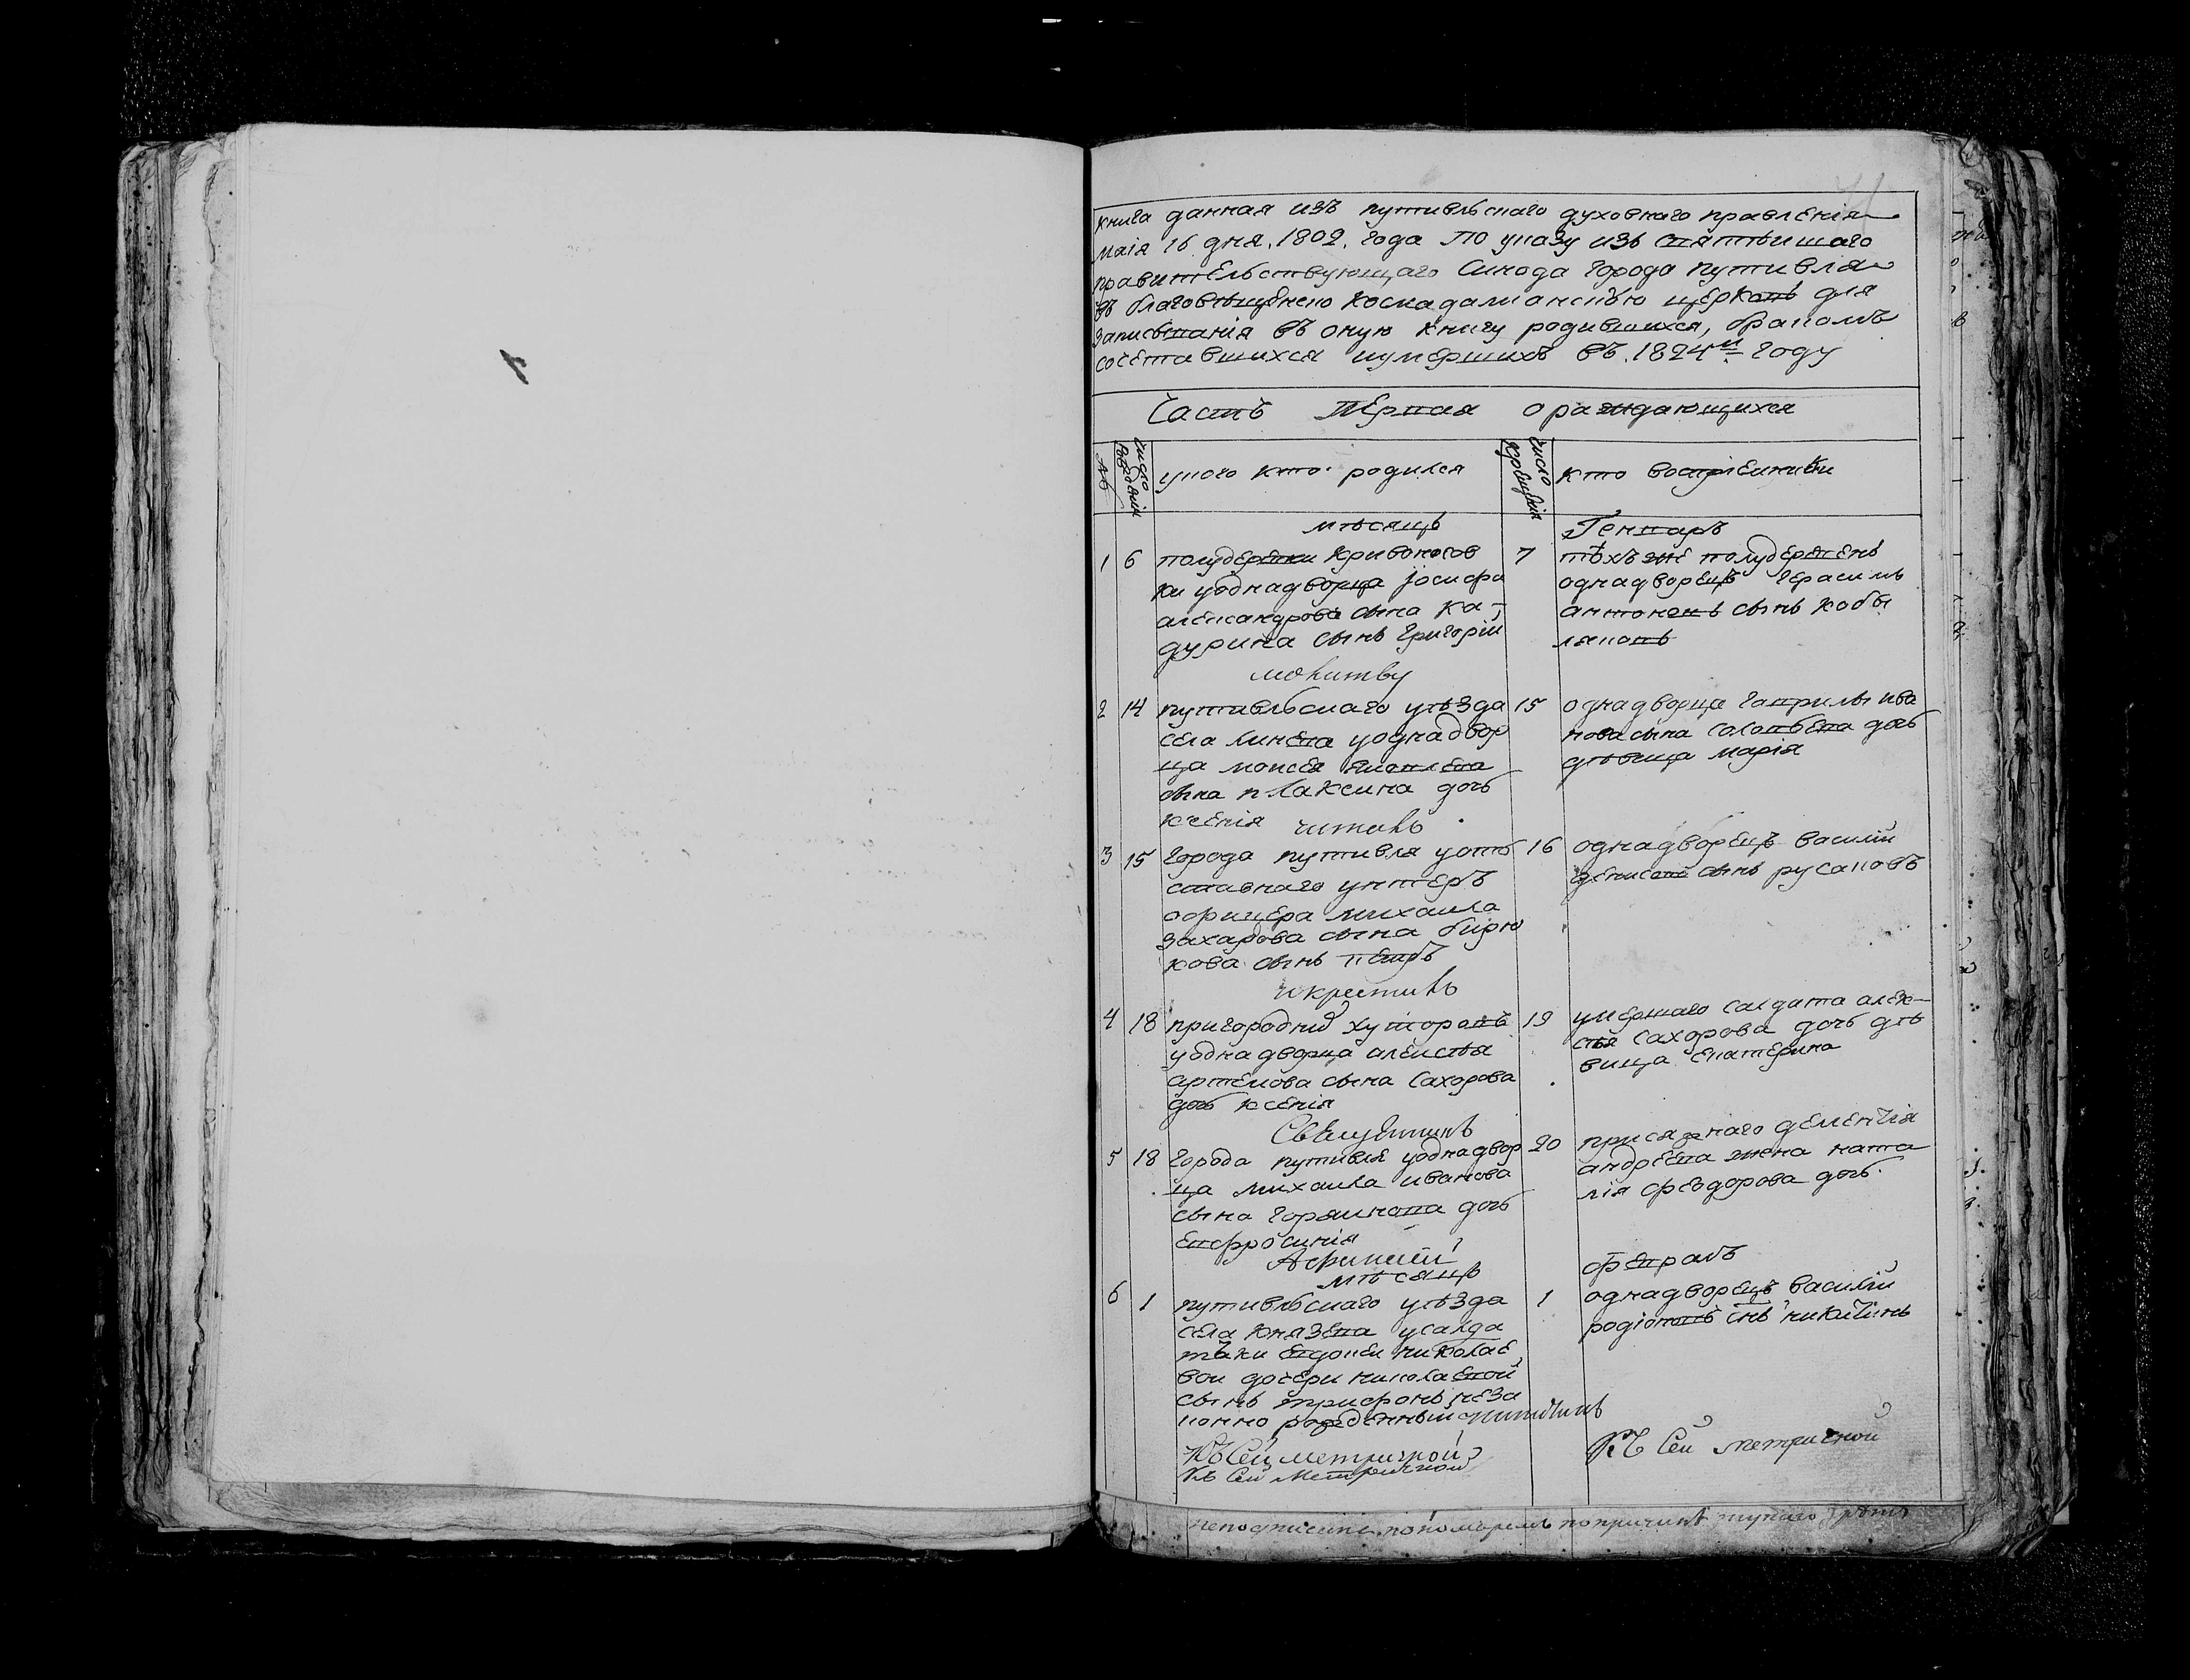 книга данная изъ путивльскаго духовнаго правленія
маія 16 дня. 1802. года По указу изъ святѣишаго
правительствующаго Синода города Путивля
въ благовѣщенско космадаміанскую церковь для
записыванія въ оную книгу родившихся, бракомъ
сочетавшихся иумершихъ въ. 1824м году
Часть Первая ораждающихся
№
число рожденія
укого кто. родился
число крещенія
кто воспріемники
мѣсяцъ
Генваръ
1 6 полудеревни кривоносов
ки уоднадворца іосифа
александрова сына Ка-
дурина сынъ григоріи
7
тѣхъ же полудеревень
однадворецъ герасимъ
антоновъ сынъ кобы
ляковъ
молитву
2 14 путивльскаго уѣзда
села Линева уоднадвор
ца моисея
сына плаксина дочь
ксенія
15
однадворца гаврилы ива
нова сына соловьева дочь
дѣвица марія
читалъ
3 15 города путивля уот
ставнаго унтеръ
офицера михаила
захарова сына бирю
кова сынъ петръ
16
однадворецъ василіи
денисовъ сынъ русановъ
икрестилъ
4 18 пригородних хуторовъ
уоднадворца алексѣя
артемова сына сахорова
дочь ксенія
19
умершаго салдата алек-
сѣя сахорова дочь дѣ
вица екатерина
Священникъ
5 18 города путивля уоднадвор
ца михаила иванова
сына горяинова дочь
евфросинія
20
присяжнаго дементія
андреева жена ната
лія феодорова дочь.
мѣсяцъ
февраль
6 1 путивльскаго уѣзда
села князева усалда
тъки евдокеи николае
вои дочери николаевой
сынъ трифонъ неза
конно рожденныи
1
однадворецъ василіи
родіоновъ снъ никитинъ
Къ Сей метричной
Къ Сей Метричной
Къ Сей метричной
неподписано пономаремъ попричинѣ тупаго зрѣнія